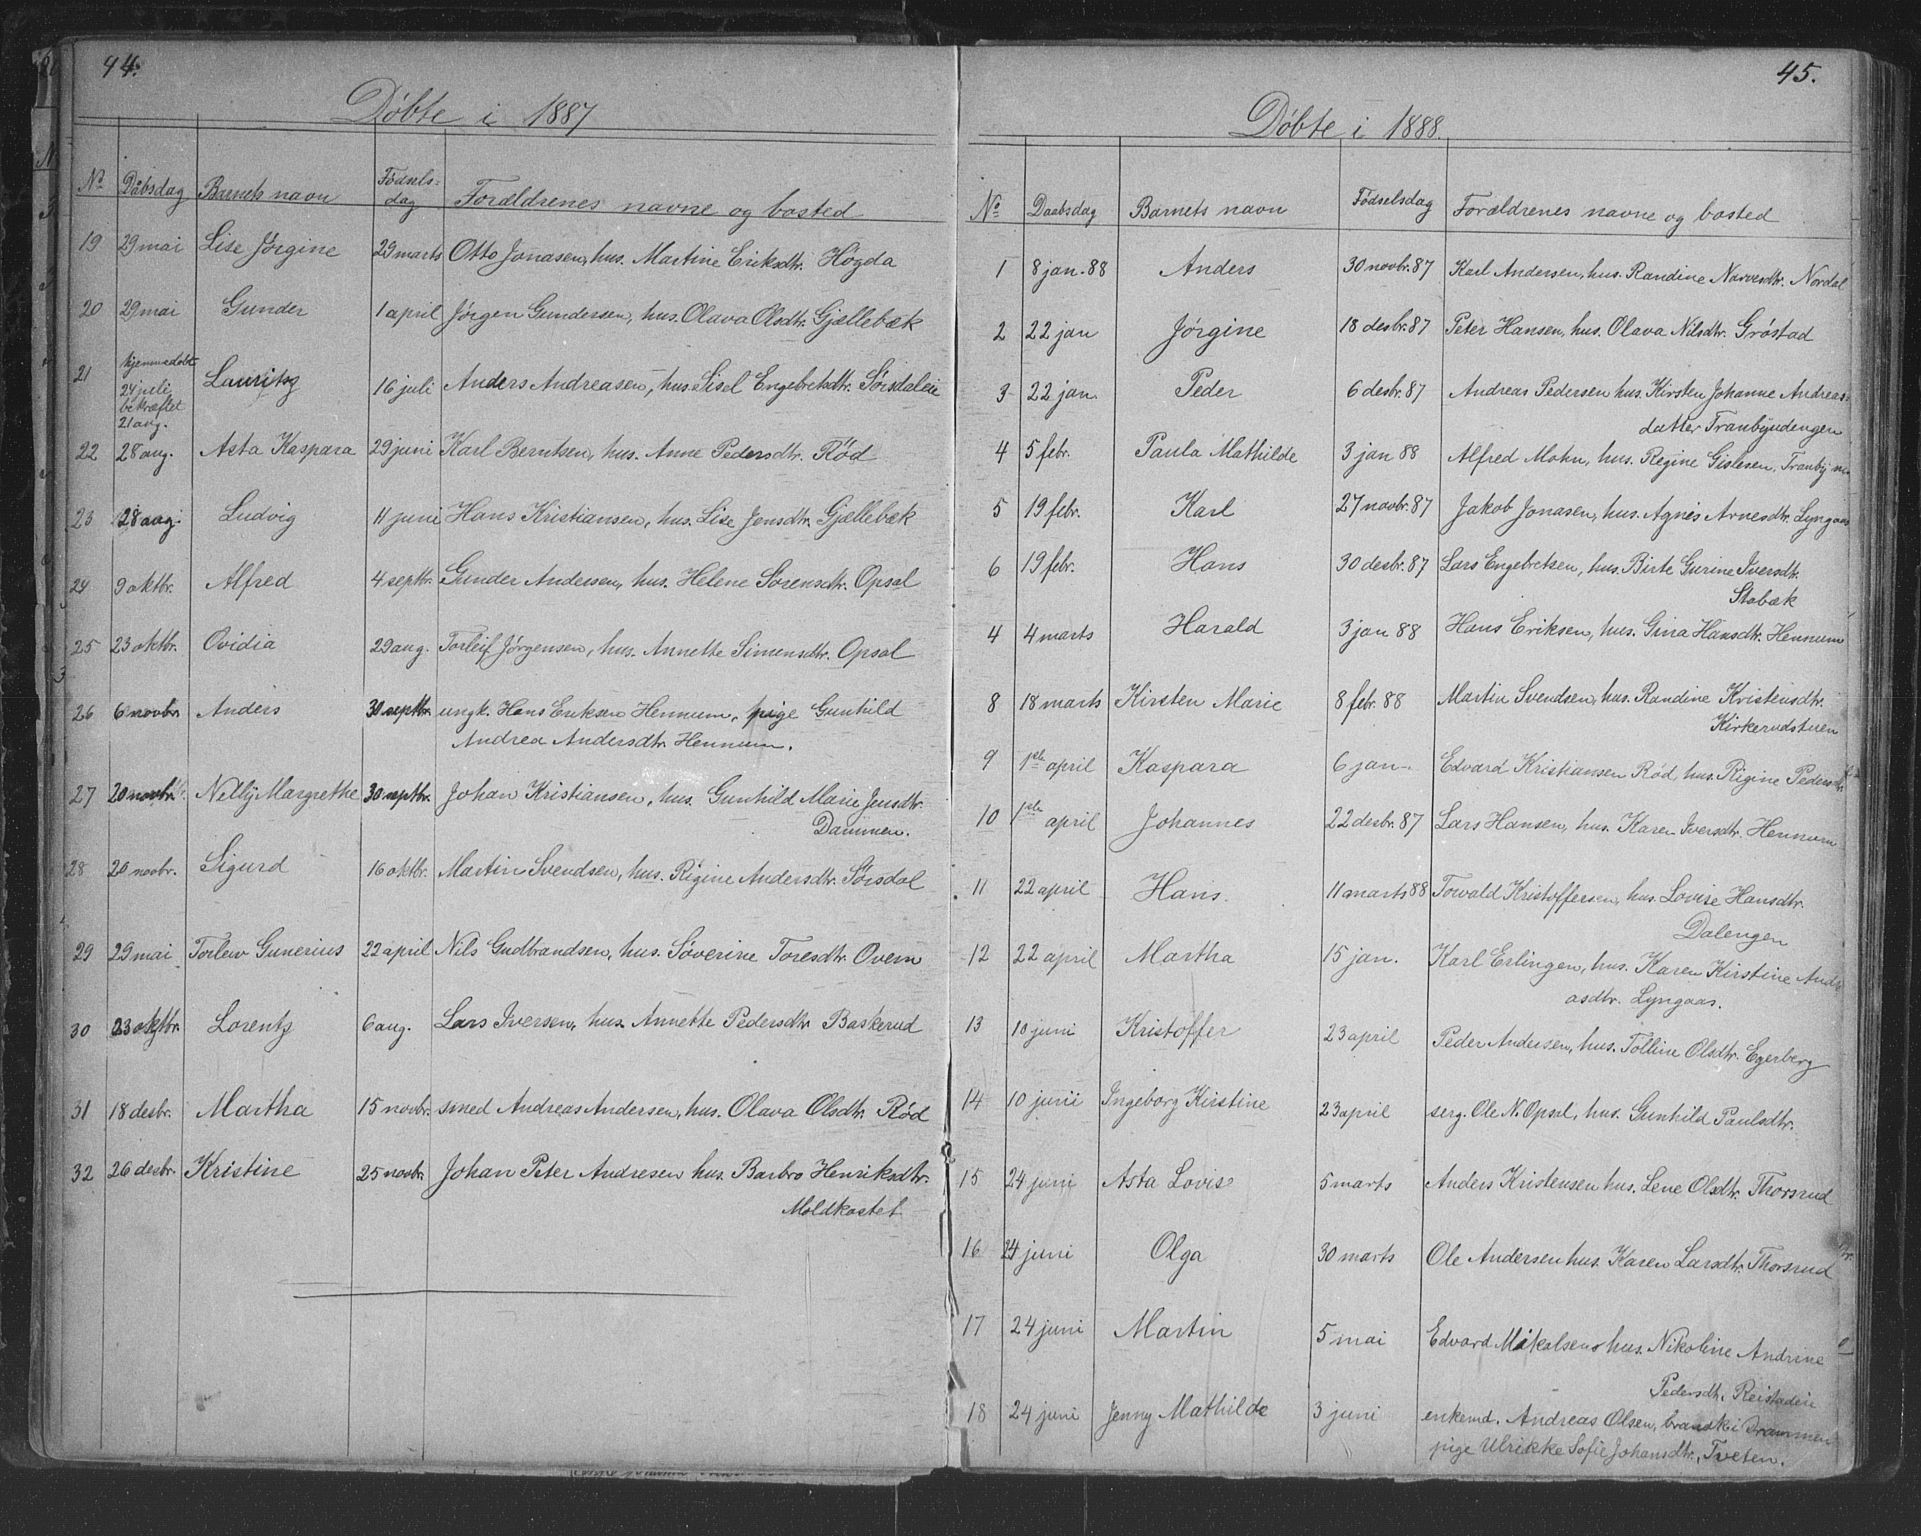 44.
Døbte i 1887
No Dåbsdag Barnets navn Fødsels-
dag Forældrenes navne og bosted
19 29 mai Lise Jørgine 29 marts Otto Jonasen, hus. Martine Eriksdtr. Høgda
20 29 mai Gunder 1 april Jørgen Gundersen, hus. Olava Olsdtr. Gjællebæk
21 hjemmedøbt
24 juli
bekræftet
21 aug. Lauritz 16 juli Anders Andreasen, hus. Lisel Engebretsdtr. Sørsdaleie
22 28 aug. Asta Kaspara 29 juni Karl Berntsen, hus. Anne Pedersdtr. Rød
23 28 aug. Ludvig 11 juni Hans Kristiansen, hus. Lise Jonsdtr. Gjællebæk
24 9 oktbr. Alfred 4 septbr. Gunder Andersen, hus. Helene Sørensdtr. Opsal
25 23 oktbr. Ovidia 29 aug. Torleif Jørgensen, hus. Annette Simensdtr. Opsal
26 6 novbr. Anders 30 septbr. ungk. Hans Eriksen Hennum, pige Gunhild
Andrea Andersdtr. Hennum.
27 20 novbr. Nelly Margrethe 30 septbr. Johan Kristiansen, hus. Gunhild Marie Jensdtr.
Dammen.
28 20 novbr. Sigurd 16 oktbr. Martin Svendsen, hus. Rigine Andersdtr. Sørsdal
29 29 mai Torlew Gunerius 22 april Nils Gudbrandsen, hus. Søverine Toresdtr. Overn
30 23 oktbr. Lorentz 6 aug. Lars Iversen, hus. Annette Pedersdtr. Baskerud
31 18 desbr. Martha 15 novbr. smed Andreas Andersen, hus. Olava Olsdtr. Rød
32 26 desbr. Kristine 25 novbr. Johan Peter Andresen hus. Barbro Henriksdtr.
Moldkastet
45.
Døbte i 1888.
No Daabsdag Barnets navn Fødselsdag Forældrenes navne og bosted
1 8 jan. 88 Anders 30 novbr. 87 Karl Andersen, hus. Randine Narvesdtr. Nordal
2 22 jan Jørgine 18 desbr. 87 Peter Hansen, hus. Olava Nilsdtr. Grøstad
3 22 jan. Peder 6 desbr. 87 Andreas Pedersen hus. Kirsten Johanne Andreas-
datter Tranbyudengen
4 5 febr. Paula Mathilde 3 jan 88 Alfred Mohn, hus. Regine Gislesen, Tranby
5 19 febr. Karl 27 novbr. 87 Jakob Jonasen, hus. Agnes Arnesdtr. Lyngaas
6 19 febr. Hans 30 desbr. 87 Lars Engebretsen, hus. Birte Gurine Iversdtr.
Stabæk
4 4 marts Harald 3 jan 88 Hans Eriksen, hus. Gina Hansdtr. Hennum
8 18 marts Kirsten Marie 8 febr. 88 Martin Svendsen, hus. Randine Kristensdtr.
Kirkerudstuen
9 1ste april Kaspara 6 jan. Edvard Kristiansen Rød hus. Rigine Pedersdtr.
10 1ste april Johannes 22 desbr. 87 Lars Hansen, hus. Karen Iversdtr. Hennum
11 22 april Hans. 11 marts 88 Torvald Kristoffersen, hus. Lovise Hansdtr.
Dalengen
12 22 april Martha 15 jan. Karl Erlingen, hus. Karen Kirstine Andre
asdtr. Lyngaas.
13 10 juni Kristoffer 23 april Peder Andersen, hus. Tolline Olsdtr. Egerberg
14 10 juni Ingeborg Kirstine 23 april serg. Ole N. Opsal, hus. Gunhild Paulsdtr.
15 24 juni Asta Lovise 5 marts Anders Kristensen hus. Lene Olsdtr. Thorsrud
16 24 juni Olga 30 marts Ole Andersen hus. Karen Larsdtr. Thorsrud
17 24 juni Martin 5 mai Edvard Mikalsens hus. Nikoline Andrine
Pedersdtr. Reistadeie
18 24 juni Jenny Mathilde 3 juni enkemd. Andreas Olsen, brandk i Drammen
pige Ulrikke Sofie Johansdtr, Tveten.